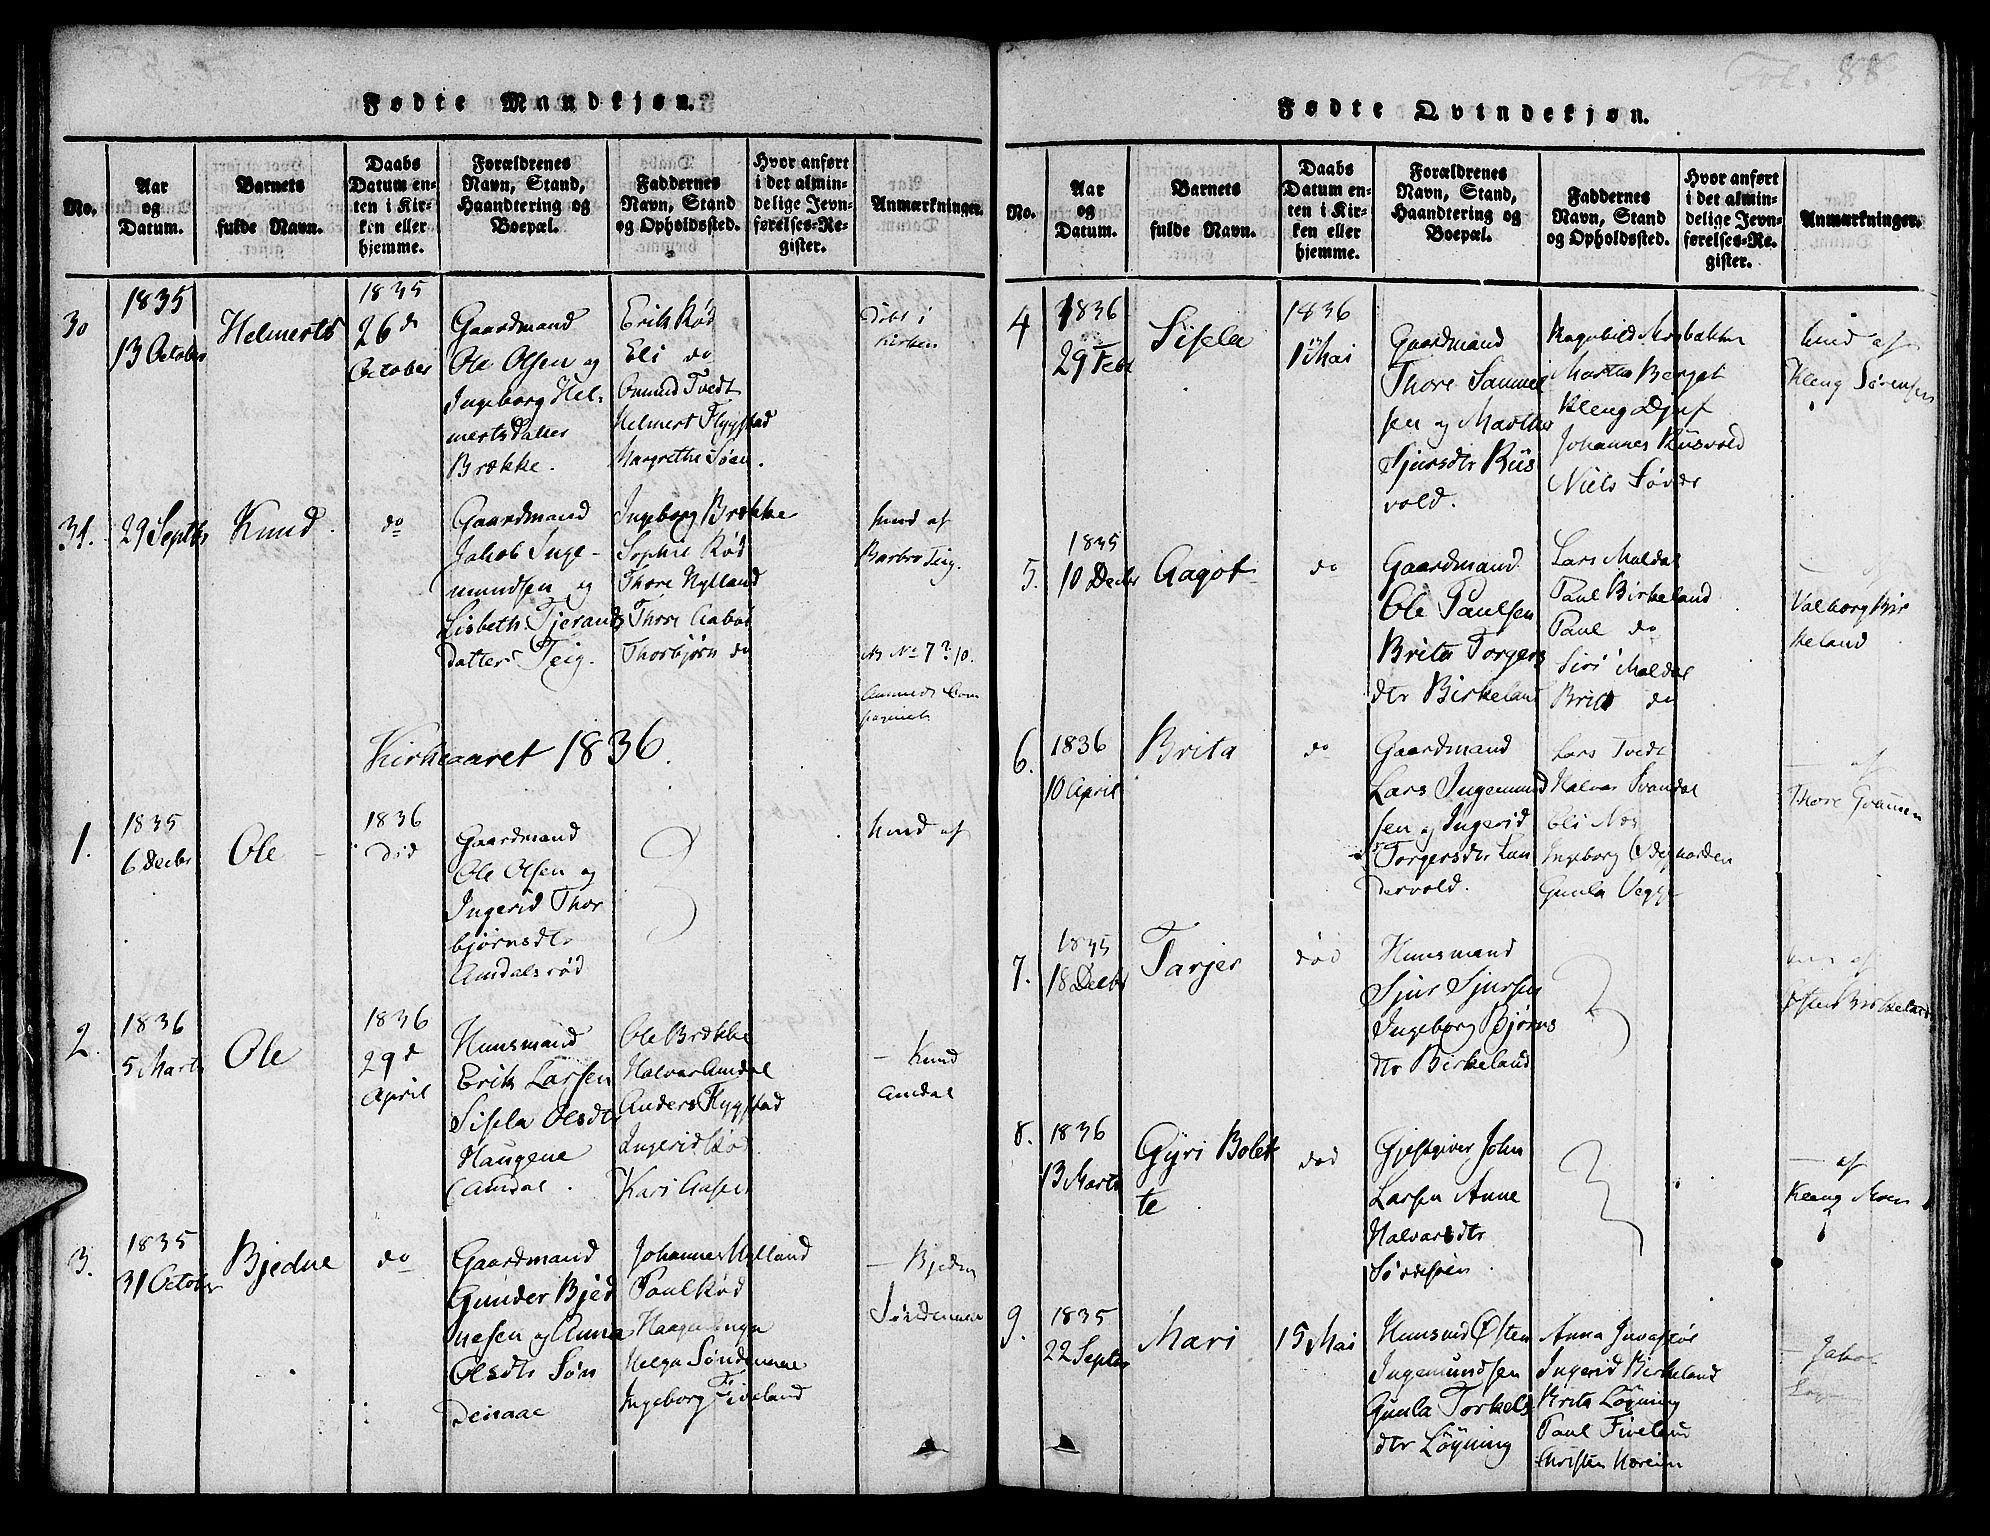 Fødte Mandkjøn.
No.
Aar
og
Datum.
Barnets
fulde Navn.
Daabs
Datum en-
ten i Kir-
ken eller
hjemme.
Forældrenes
Navn, Stand,
Haandtering og
Boepæl.
Faddernes
Navn, Stand
og Opholdssted.
Hvor anført
i det almin-
delige Jevn-
førelses-Re-
gister.
Anmærkninger.
30
1835
13 October
Helmerts
1835
26 de
October
Gaardmand
Ole Olsen og
Ingeborg Hel-
mertsdatter
Brække.
Erik Rød
Eli do
Omund Tvedt
Helmert Flygstad
Margrethe Søen.
Døbt i
Kirken
31.
29 Septbr
Knud
do
Gaardmand
Jakob Inge-
mundsen og
Lisbeth Tjerands
datter Teig.
Ingeborg Brække
Sophie Rød
Thore Nylland
Thore Aabø
Thorbjørn do
hmd af
Barbro Teig.
Kirkeaaret 1836.
1.
1835
6 Decbr
Ole
1836
død
Gaardmand
Ole Olsen og
Ingerid Thor
bjørnsdtr
Amdalsrød
hmd af
2.
1836
5 Marts
Ole
1836
29 d
April
Huusmand
Erik Larsen
Sisela Olsdtr
Haugene
Amdal.
Ole Brække
Halvar Amdal
Anders Flygstad
Ingerid Rød.
Kari Aasen
— Knud
Amdal
3.
1835
31 October
Bjedne
do
Gaardmand
Gunder Bjed
nesen og Anna
Olsdtr Søn
denaae
Johannes Nylland
Paul Rød
Helga Søndenaae
Ingeborg Fiveland
— Bjeden
Søndenaae
Fol. 88
Fødte Qvindekjøn.
No.
Aar
og
Datum.
Barnets
fulde Navn.
Daabs
Datum en-
ten i Kir-
ken eller
hjemme.
Forældrenes
Navn, Stand,
Haandtering og
Boepæl.
Faddernes
Navn, Stand
og Opholdssted.
Hvor anført
i det almin-
delige Jevn-
førelses-Re-
gister.
Anmærkninger.
4
1836
29 Febr
Sisela
1836
1 Mai
Gaardmand
Thore Samuel
sen og Martha
Sjursdtr Riis
vold.
Martha Berget
Kleng Djuf
Johannes Riisvold
Niels
hmd af
Kleng Sørensen
5.
1835
10 Decbr
Aagot
do
Gaardmand
Ole Paulsen
Brita Torgers
dtr Birkeland
Lars Maldal
Paul Birkeland
Paul do
Siri Maldal
Brita do
—
Valborg Bir
keland
6.
1836
10 April
Brita
do
Gaardmand
Lars Ingemund
sen og Ingerid
Torgersdtr Lan
dervold.
Lars Tvedt
Halvar Svandal
Eli Næs
Ingeborg Ødegaarden
Gunla Vegge
— af
Thore
7.
1835
18 Decbr
Tarjer
død
Huusmand
Sjur Sjursen
Ingeborg Bjørns
dtr Birkeland
hmd af
Østen Birkeland
8.
1836
13 Marts
Gyri Bolet
te
død
Gjestgiver John
Larsen Anne
Halvarsdtr
— af
Kleng Moen
9.
1835
22 Septbr
Mari
15 Mai
Huusmd Østen
Ingemundsen
Gunla Torkels
dtr Løyning
Anna
Ingerid Birkeland
Brita Løyning
Paul Fiveland
Christen
— Jakob